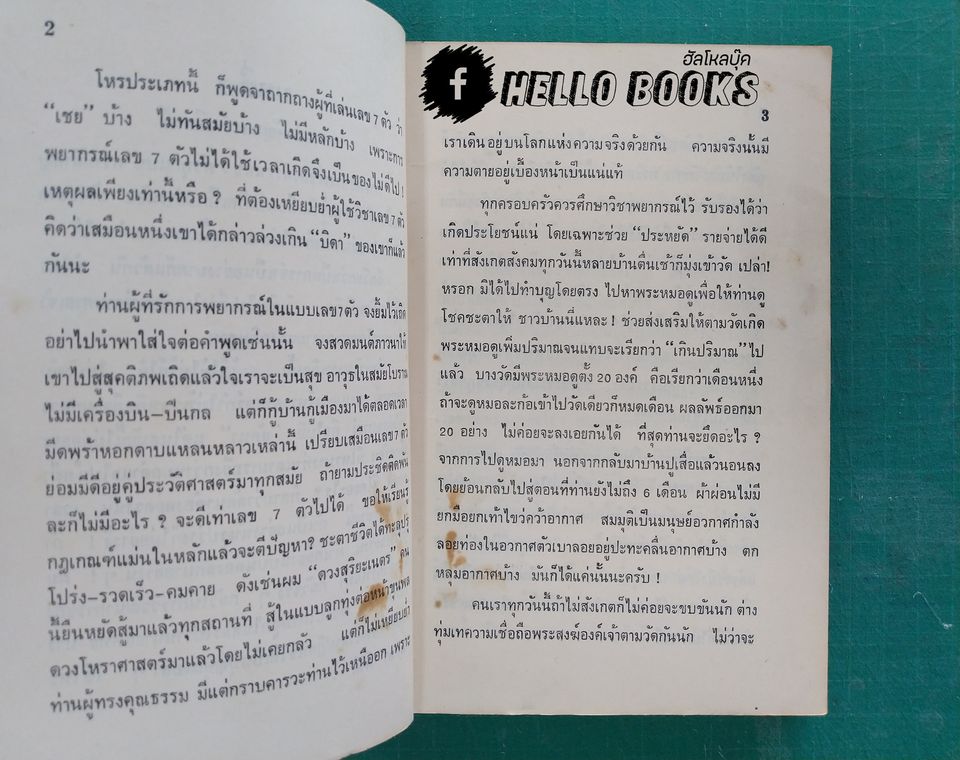 2
โหรประเภทนี้ ก็พูดจาถากถางผู้ที่เล่นเลข 7 ตัว ว่า
“เชย” บ้าง ไม่ทันสมัยบ้าง ไม่มีหลักบ้าง เพราะการ
พยากรณ์เลข 7 ตัวไม่ได้ใช้เวลาเกิดจึงเป็นของไม่ดีไป !
เหตุผลเพียงเท่านี้หรือ ? ที่ต้องเหยียบย่ำผู้ใช้วิชาเลข 7 ตัว
คิดว่าเสมือนหนึ่งเขาได้กล่าวล่วงเกิน “บิดา” ของเขาก็แล้ว
กันนะ
ท่านผู้ที่รักการพยากรณ์ในแบบเลข7ตัว จงยิ้มไว้เถิด
อย่าไปนำพาใส่ใจต่อคำพูดเช่นนั้น จงสวดมนต์ภาวนาให้
เขาไปสู่สุคติภพเถิดแล้วใจเราจะเป็นสุข อาวุธในสมัยโบราณ
ไม่มีเครื่องบิน–ปืนกล แต่ก็กู้บ้านกู้เมืองมาได้ตลอดเวลา
มีดพร้าหอกดาบแหลนหลาวเหล่านี้ เปรียบเสมือนเลข 7 ตัว
ย่อมมีดีอยู่คู่ประวัติศาสตร์มาทุกสมัย ถ้ายามประชิดติดพัน
ละก็ไม่มีอะไร ? จะดีเท่าเลข 7 ตัวไปได้ ขอให้เรียนรู้
กฎเกณฑ์แม่นในหลักแล้วจะตีปัญหา? ชะตาชีวิตได้ทะลุปรุ
โปร่ง–รวดเร็ว–คมคาย ดังเช่นผม “ดวงสุริยะเนตร” คน
นี้ยืนหยัดสู้มาแล้วทุกสถานที่ สู้ในแบบลูกทุ่งต่อหน้าขุนพล
ดวงโหราศาสตร์มาแล้วโดยไม่เคยกลัว แต่ก็ไม่เหยียบย่ำ
ท่านผู้ทรงคุณธรรม มีแต่กราบคารวะท่านไว้เหนือออก เพราะ
f
ฮัลโหลบุ๊ค
HELLO BOOKS
3
เราเดินอยู่บนโลกแห่งความจริงด้วยกัน ความจริงนั้นมี
ความตายอยู่เบื้องหน้าเป็นแน่แท้
ทุกครอบครัวควรศึกษาวิชาพยากรณ์ไว้ รับรองได้ว่า
เกิดประโยชน์แน่ โดยเฉพาะช่วย “ประหยัด” รายจ่ายได้ดี
เท่าที่สังเกตสังคมทุกวันนี้หลายบ้านตื่นเช้าก็มุ่งเข้าวัด เปล่า!
หรอก มิได้ไปทำบุญโดยตรง ไปหาพระหมอดูเพื่อให้ท่านดู
โชคชะตาให้ ชาวบ้านนี่แหละ ! ช่วยส่งเสริมให้ตามวัดเกิด
พระหมอดูเพิ่มปริมาณจนแทบจะเรียกว่า “เกินปริมาณ” ไป
แล้ว บางวัดมีพระหมอดูตั้ง 20 องค์ คือเรียกว่าเดือนหนึ่ง
ถ้าจะดูหมอละก้อเข้าไปวัดเดียวก็หมดเดือน ผลลัพธ์ออกมา
20 อย่าง ไม่ค่อยจะลงเอยกันได้ ที่สุดท่านจะยึดอะไร ?
จากการไปดูหมอมา นอกจากกลับมาบ้านปูเสื่อแล้วนอนลง
โดยย้อนกลับไปสู่ตอนที่ท่านยังไม่ถึง 6 เดือน ผ้าผ่อนไม่มี
ยกมือยกเท้าไขว่คว้าอากาศ สมมุติเป็นมนุษย์อวกาศกำลัง
ลอยท่องในอวกาศตัวเบาลอยอยู่ปะทะคลื่นอากาศบ้าง ตก
หลุมอากาศบ้าง มันก็ได้แค่นั้นนะครับ !
คนเราทุกวันนี้ถ้าไม่สังเกตก็ไม่ค่อยจะขบขันนัก ต่าง
ทุ่มเทความเชื่อถือพระสงฆ์องค์เจ้าตามวัดกันนัก ไม่ว่าจะ